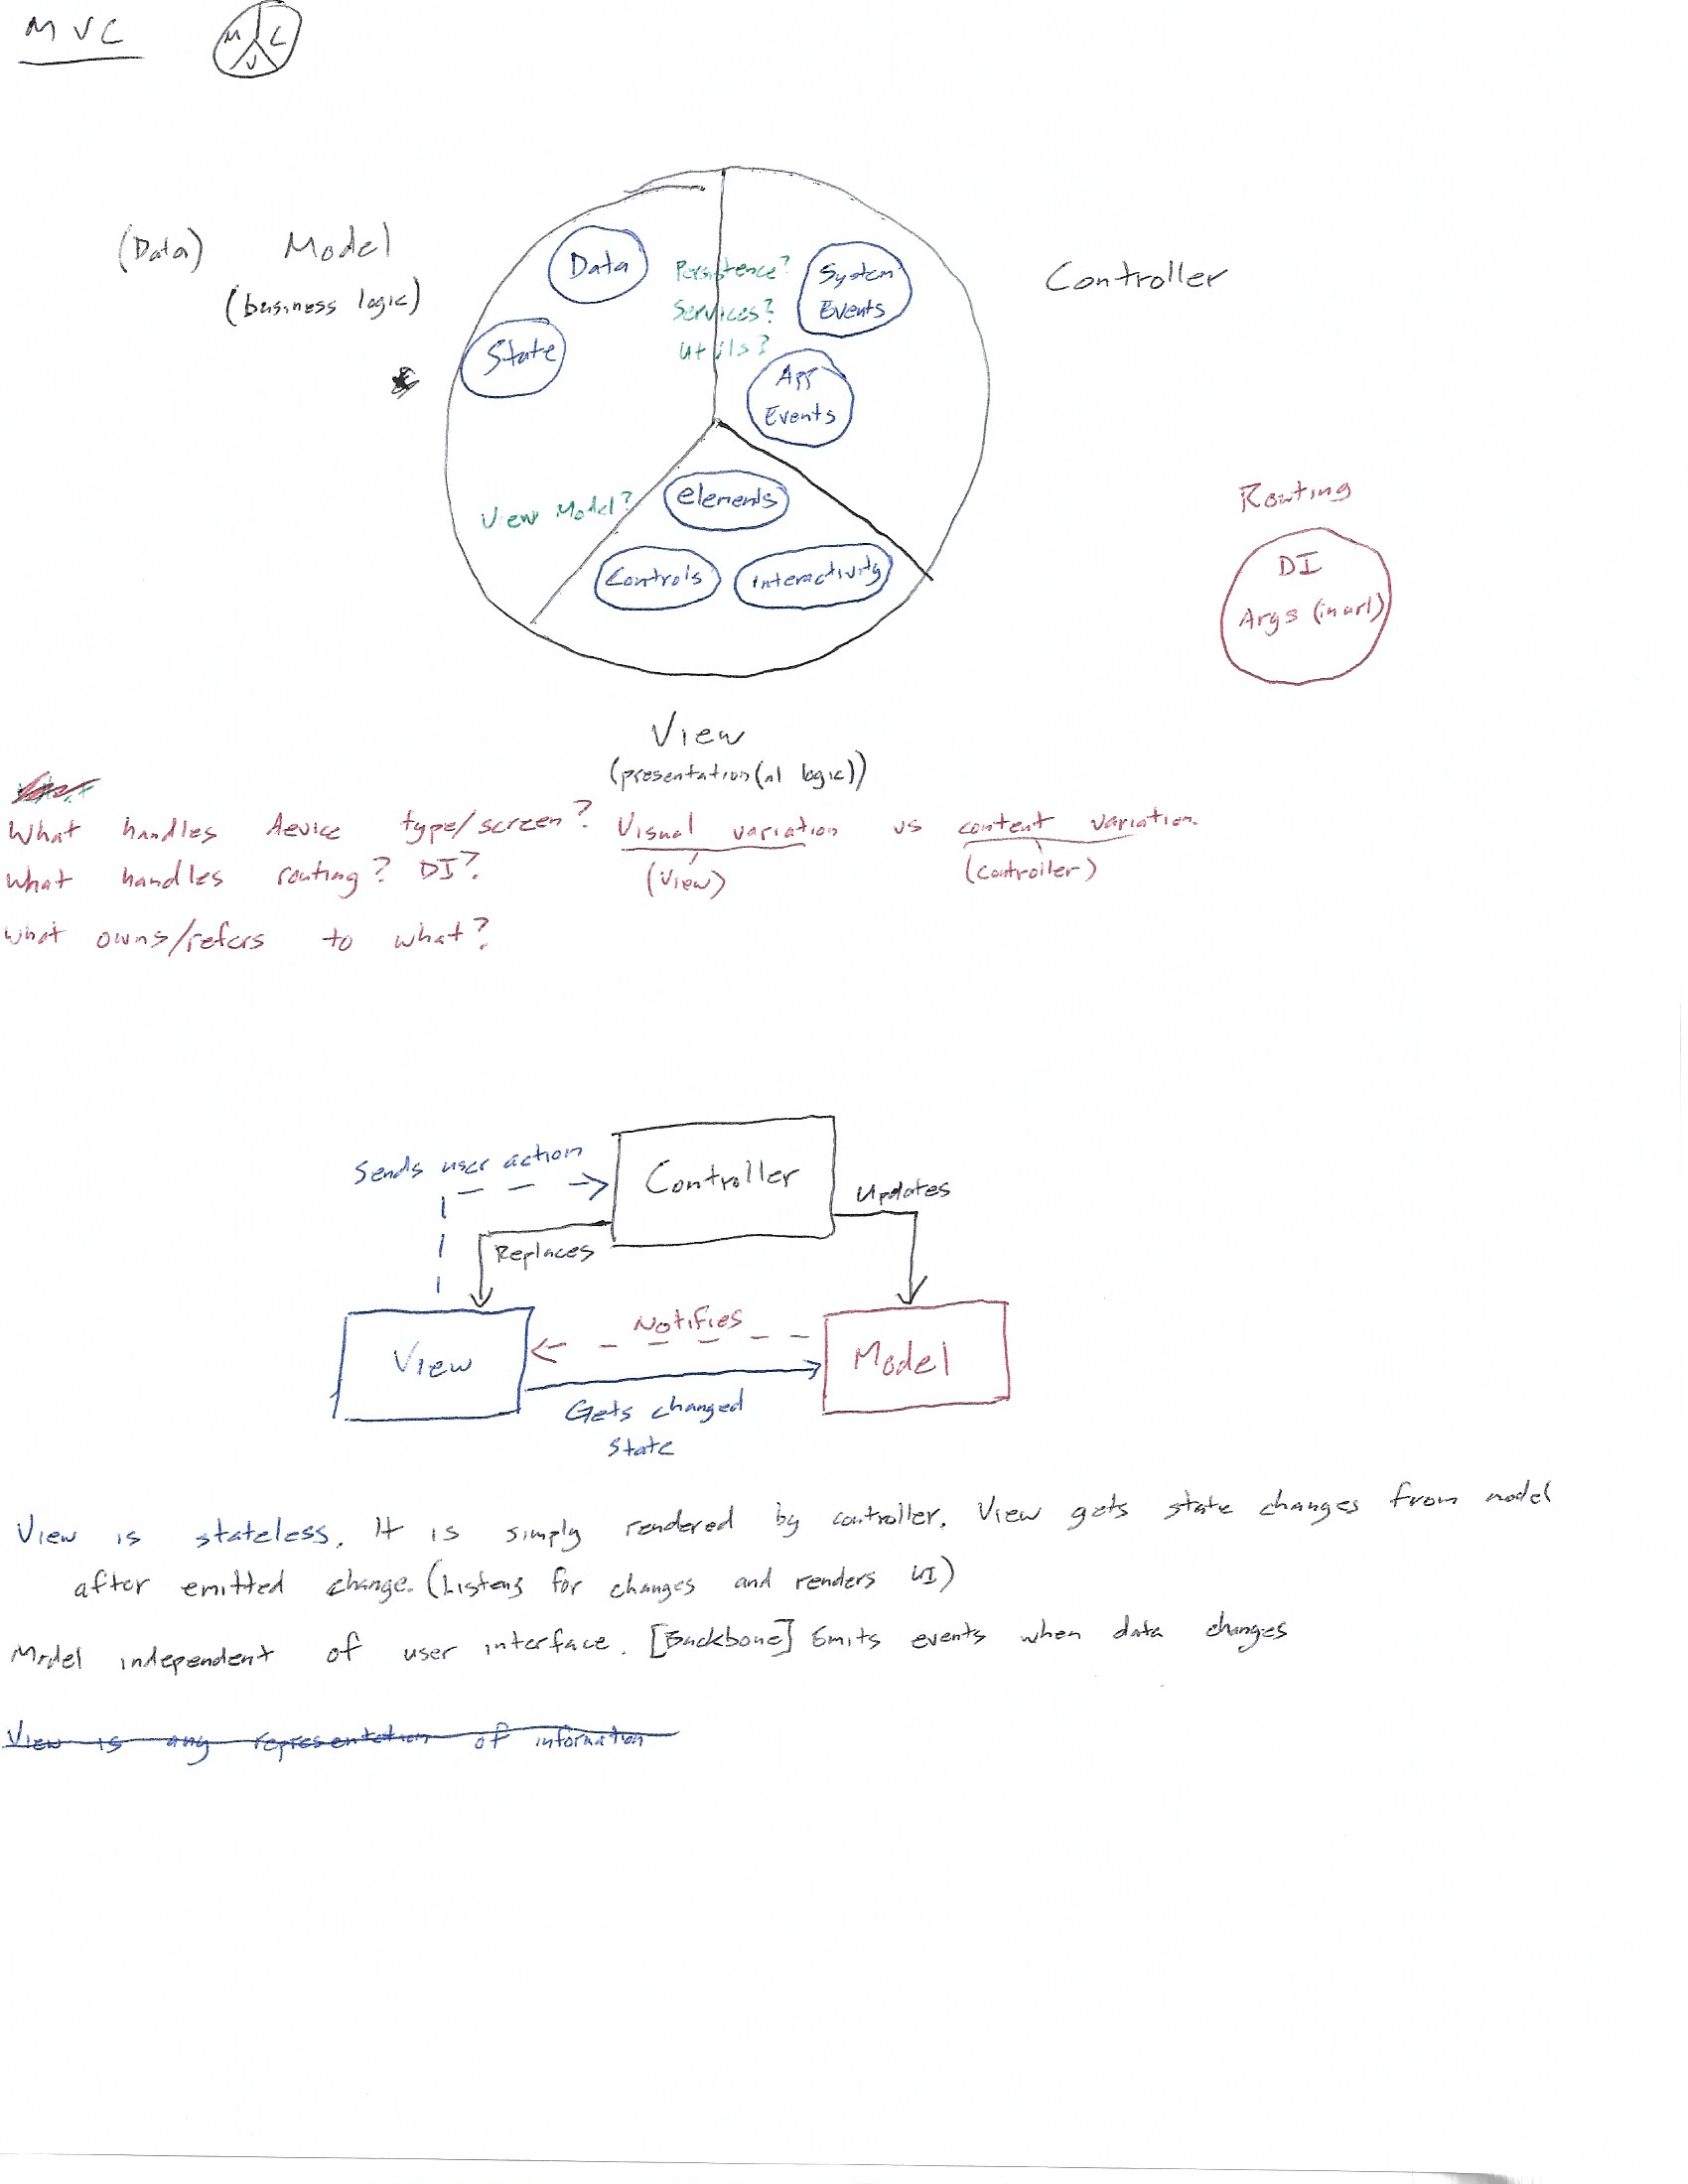 MVC
M C
V
(Data) Model
(business logic)
Data
State
Persistence?
Services?
Utils?
System
Events
App
Events
Controller
View Model?
elements
Controls
interactivity
Routing
DI
Args (in url)
View
(presentation(al logic))
What handles device type/screen? Visual variation vs content variation.
(View) (controller)
What handles routing? DI?
What owns/refers to what?
Sends user action
Controller
Updates
Replaces
Notifies
View
Model
Gets changed
state
View is stateless. It is simply rendered by controller. View gets state changes from model
after emitted change. (Listens for changes and renders UI)
Model independent of user interface. [Backbone] Emits events when data changes
View is any representation of information